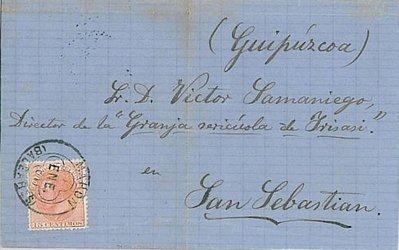 (Guipúzcoa)
Sr. D. Victor Samaniego,
Director de la "Granja sericícola de Irisasi."
en
San Sebastian.
MAHON
ENE.
(BALEARES)
15 CENTIMOS